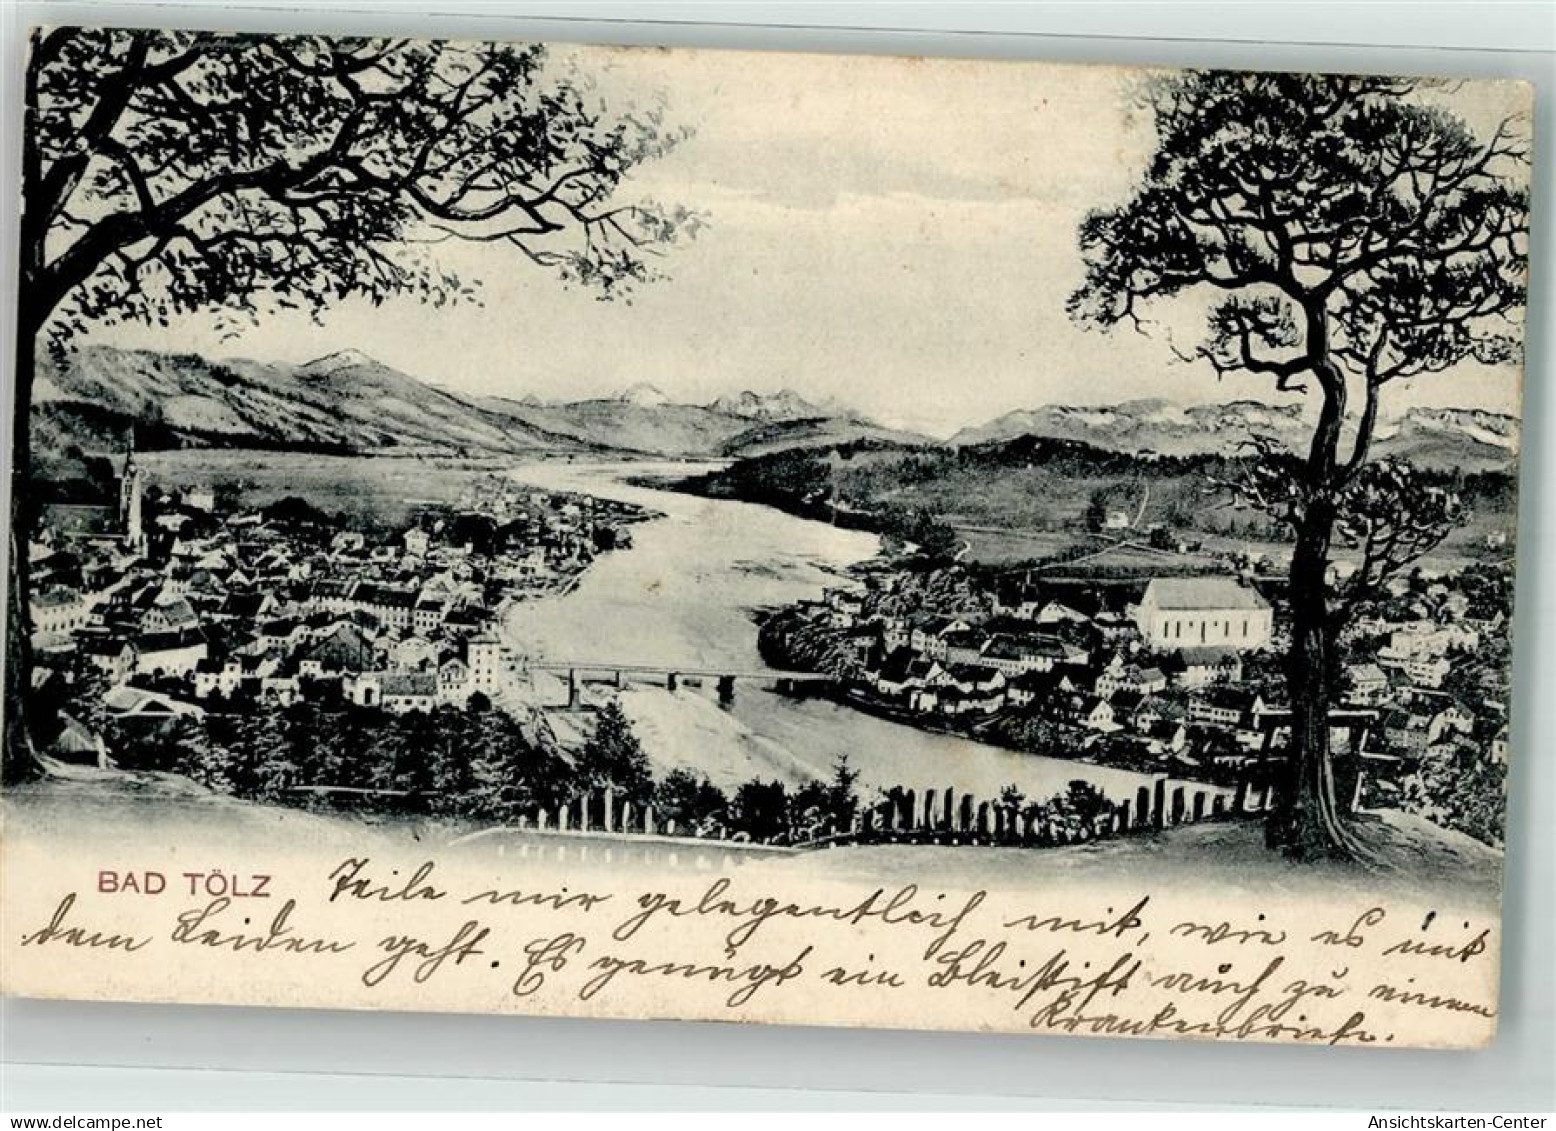 BAD TÖLZ
Teile mir gelegentlich mit, wie es mit
dem Leiden geht. Es genügt ein Bleistift auch zu einem
Krankenbriefe.
delcampe.net
Ansichtskarten-Center